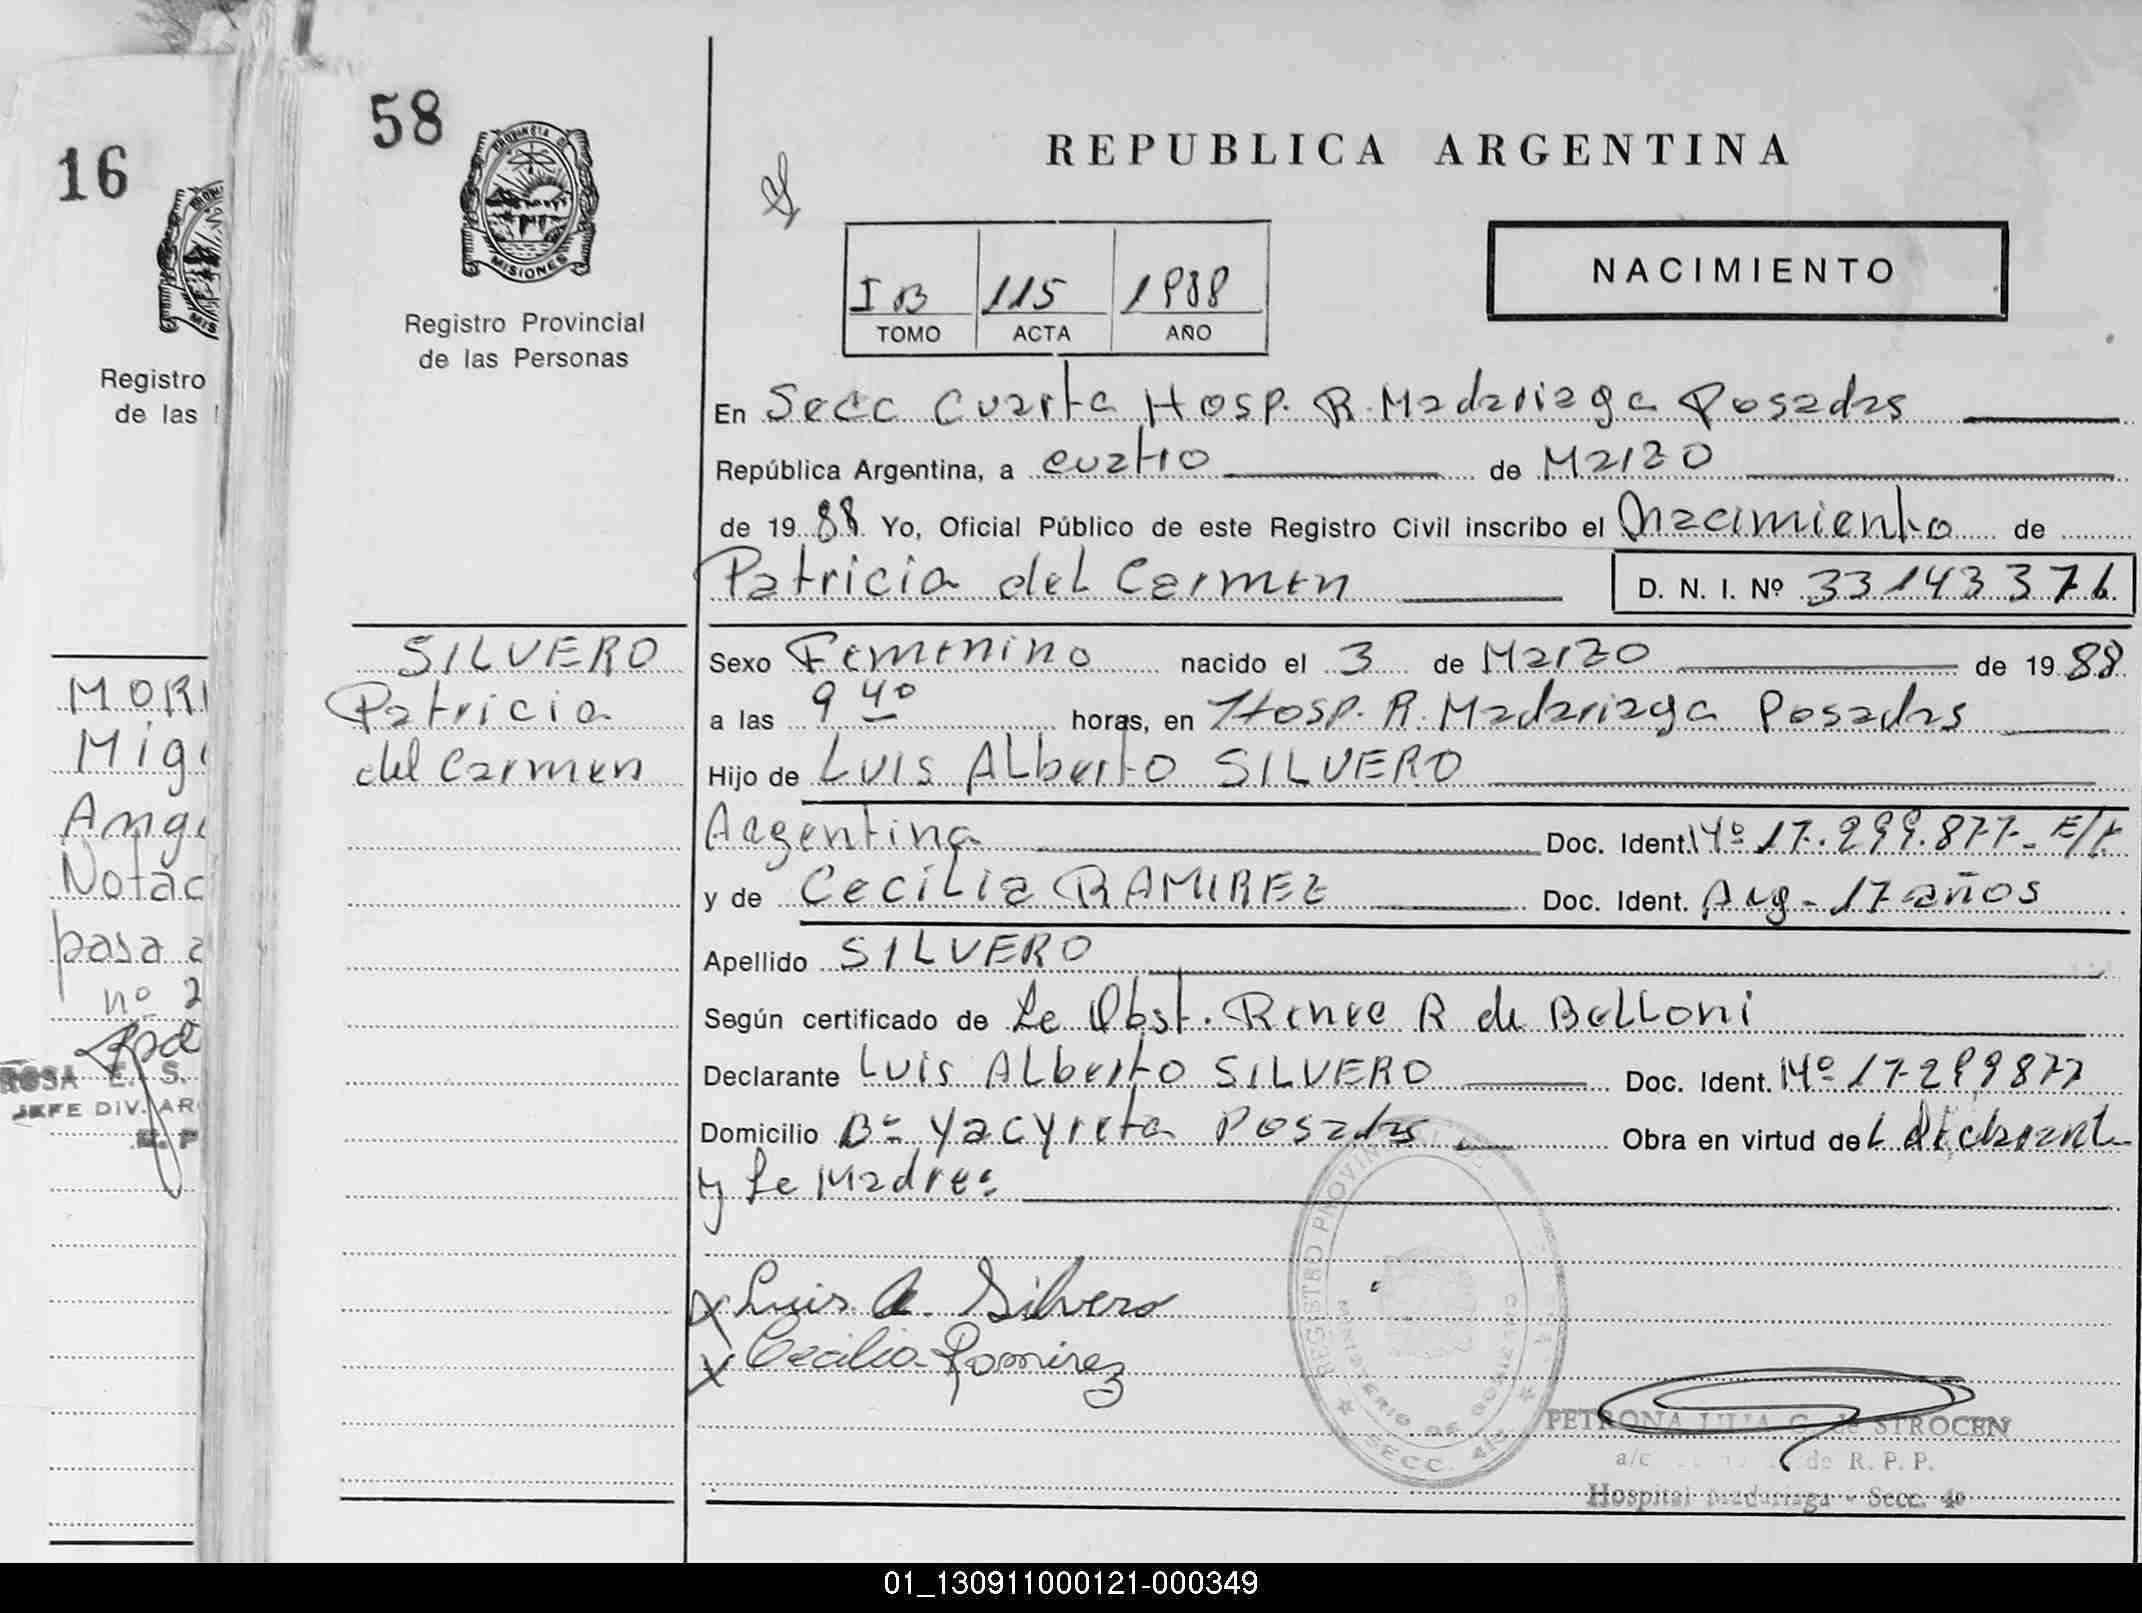 16
Registro
de las
MORI
Mig
Ang
Notac
pasa a
nº 2
ROSA E. S.
JEFE DIV. AR
58
PROVINCIA DE
MISIONES
Registro Provincial
de las Personas
SILVERO
Patricia
del Carmen
REPUBLICA ARGENTINA
I B 115 1988
TOMO ACTA AÑO
NACIMIENTO
En Secc Cuarta Hosp. R. Madariaga Posadas
República Argentina, a cuatro de Marzo
de 19 88 Yo, Oficial Público de este Registro Civil inscribo el Nacimiento de
Patricia del Carmen D. N. I. Nº 33143376
Sexo Femenino nacido el 3 de Marzo de 19 88
a las 9 40 horas, en Hosp. R. Madariaga Posadas
Hijo de Luis Alberto SILVERO
Argentina Doc. Ident. Mº 17.299.877-
y de Cecilia RAMIREZ Doc. Ident. Arg - 17 años
Apellido SILVERO
Según certificado de La Obst. Renee R de Belloni
Declarante Luis Alberto SILVERO Doc. Ident. Mº 17299877
Domicilio Bº Yacyreta Posadas Obra en virtud del declarante
y la Madre
X Luis A. Silvero
X Cecilia Ramirez
REGISTRO PROVINCIAL
MINISTERIO DE GOBIERNO
SECC. 4ta
PETRONA G. de STROCEN
a/c de R. P. P.
Hospital Madariaga - Secc. 4º
01_130911000121-000349